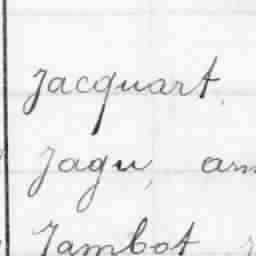 Jacquart.
Jagu,
Jambot